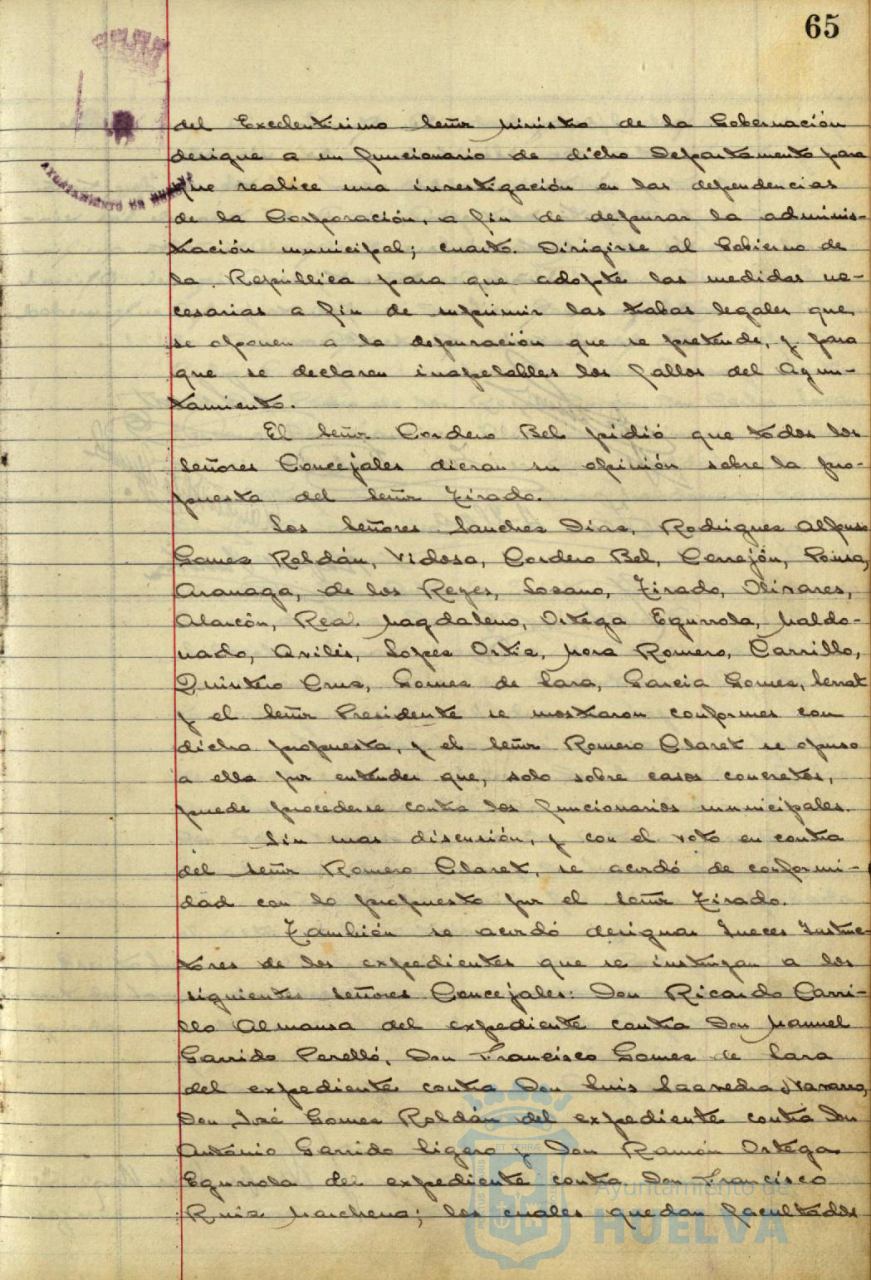 65
AYUNTAMIENTO DE HUELVA
del Excelentísimo Señor Ministro de la Gobernación
designe a un funcionario de dicho Departamento para
que realice una investigación en las dependencias
de la Corporación, a fin de depurar la adminis-
tración municipal; cuarto. Dirigirse al Gobierno de
la República para que adopte las medidas ne-
cesarias a fin de suprimir las trabas legales que
se oponen a la depuración que se pretende, y para
que se declaren inapelables los fallos del Ayun-
tamiento.
El Señor Cordero Bel pidió que todos los
Señores Concejales dieran su opinión sobre la pro-
puesta del Señor Tirado.
Los Señores Sanchez Diaz, Rodriguez Alfonso
Gomez Roldán, Vidosa, Cordero Bel, Cerrejón, Ponsa,
Aranaga, de los Reyes, Lozano, Tirado, Olivares,
Alarcón, Real, Magdaleno, Ortega Egurrola, Maldo-
nado, Avilés, Lopez Ortiz, Mora Romero, Carrillo,
Quintero Cruz, Gomez de Lara, Garcia Gomez, Serrat
y el Señor Presidente se mostraron conformes con
dicha propuesta, y el Señor Romero Claret se opuso
a ella por entender que, solo sobre casos concretos,
puede procederse contra los funcionarios municipales.
Sin mas discusión, y con el voto en contra
del Señor Romero Claret, se acordó de conformi-
dad con lo propuesto por el Señor Tirado.
También se acordó designar Jueces Instruc-
tores de los expedientes que se instruyan a los
siguientes Señores Concejales: Don Ricardo Carri-
llo Almansa del expediente contra Don Manuel
Garrido Perelló, Don Francisco Gomez de Lara
del expediente contra Don Luis Saavedra Navarro,
Don José Gomez Roldán del expediente contra Don
Antonio Garrido Ligero y Don Ramón Ortega
Egurrola del expediente contra Don Francisco
Ruiz Marchena; los cuales quedan facultados
Ayuntamiento de
HUELVA